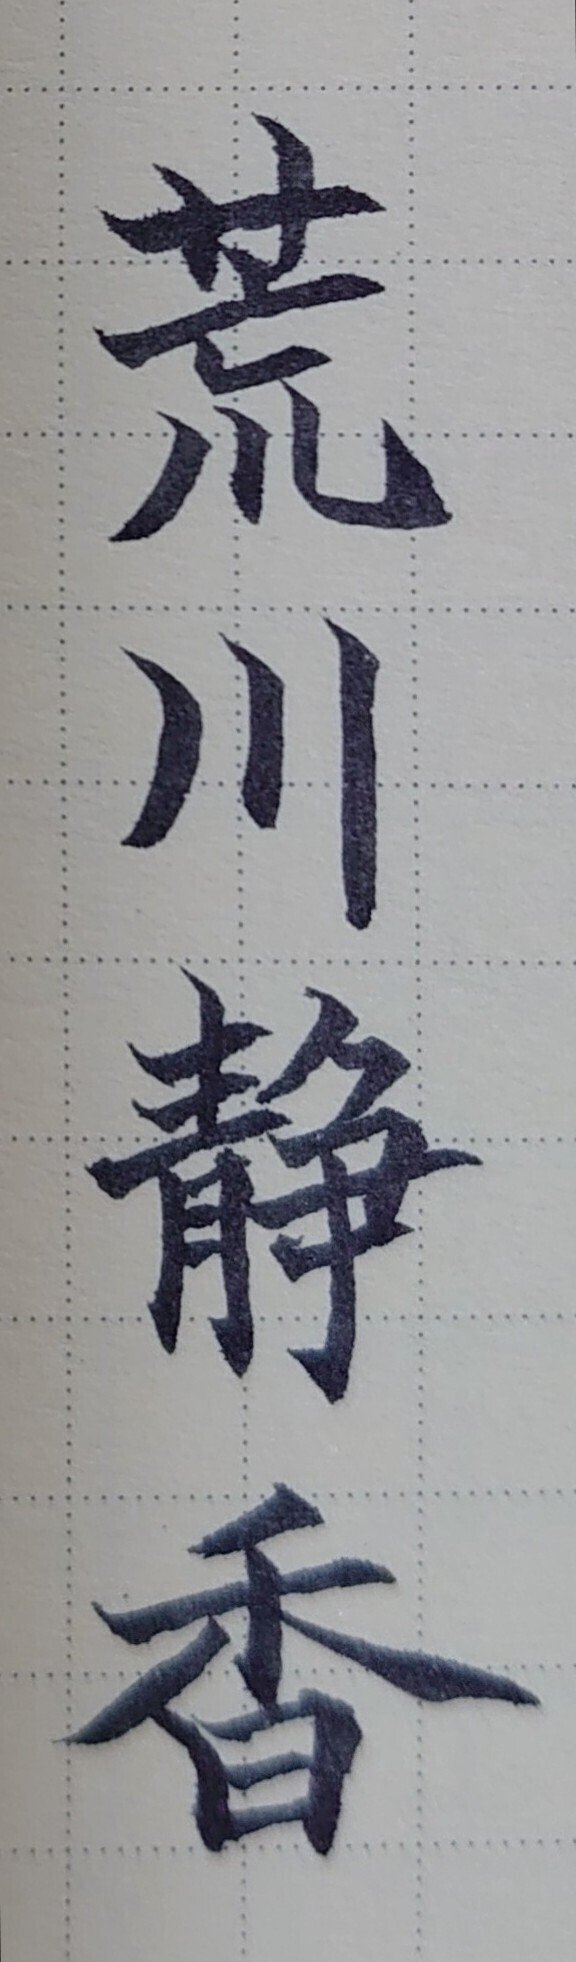 荒川静香